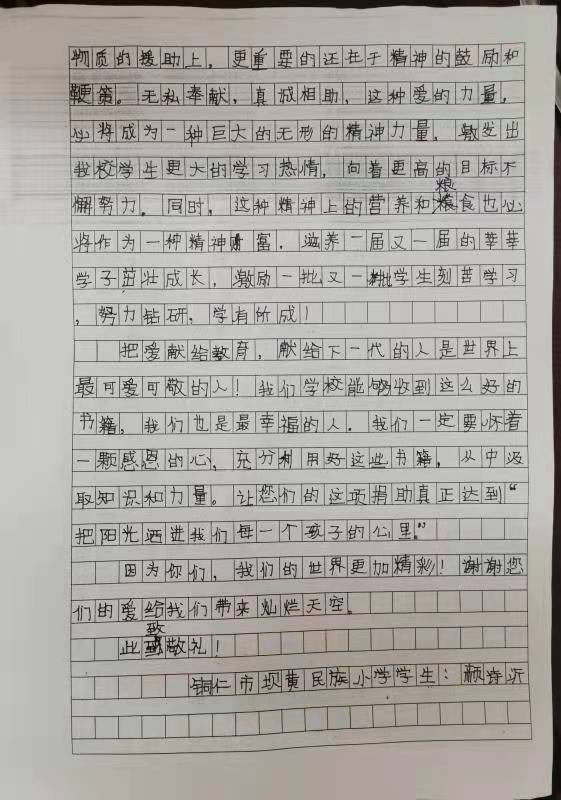 物质的援助上，更重要的还在于精神的鼓励和
鞭策。无私奉献，真诚相助，这种爱的力量，
必将成为一种巨大的无形的精神力量，激发出
我校学生更大的学习热情，向着更高的目标不
懈努力。同时，这种精神上的营养和粮食也必
将作为一种精神财富，滋养一届又一届的莘莘
学子茁壮成长，激励一批又一批学生刻苦学习
，努力钻研，学有所成！
把爱献给教育，献给下一代的人是世界上
最可爱可敬的人！我们学校能够收到这么好的
书籍，我们也是最幸福的人。我们一定要怀着
一颗感恩的心，充分利用好这些书籍，从中汲
取知识和力量。让您们的这项捐助真正达到“
把阳光洒进我们每一个孩子的心里。”
因为你们，我们的世界更加精彩！谢谢您
们的爱给我们带来灿烂天空。
此致敬礼！
铜仁市坝黄民族小学学生：颜诗沂